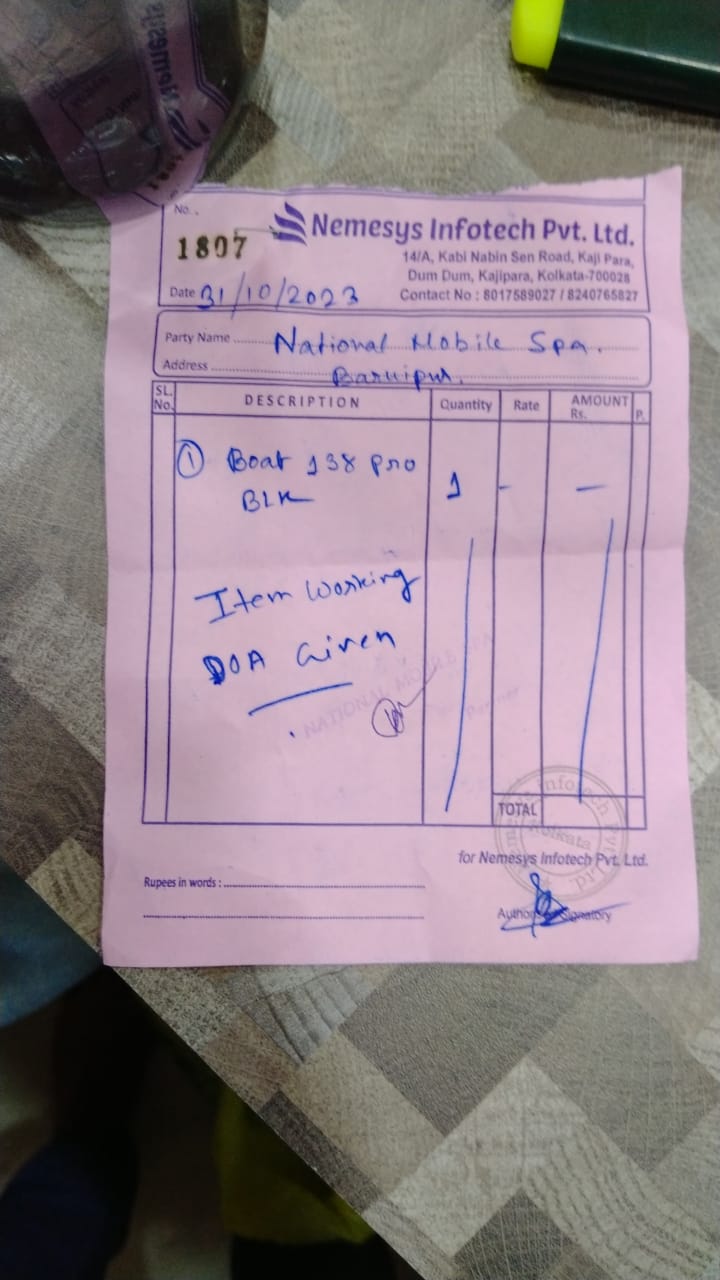 No.
1807
Nemesys Infotech Pvt. Ltd.
14/A, Kabi Nabin Sen Road, Kaji Para,
Dum Dum, Kajipara, Kolkata-700028
Contact No : 8017589027 / 8240765827
Date 31/10/2023
Party Name National Mobile Spa.
Address Baruipur.
SL. No. DESCRIPTION Quantity Rate AMOUNT Rs. P.
① Boat 138 Pro 1 - —
BLK
Item Working
DOA Given
NATIONAL MOBILE SPA
Partner
TOTAL
Nemesys Infotech Pvt. Ltd.
Kolkata
for Nemesys Infotech Pvt. Ltd.
Rupees in words :
Authorised Signatory